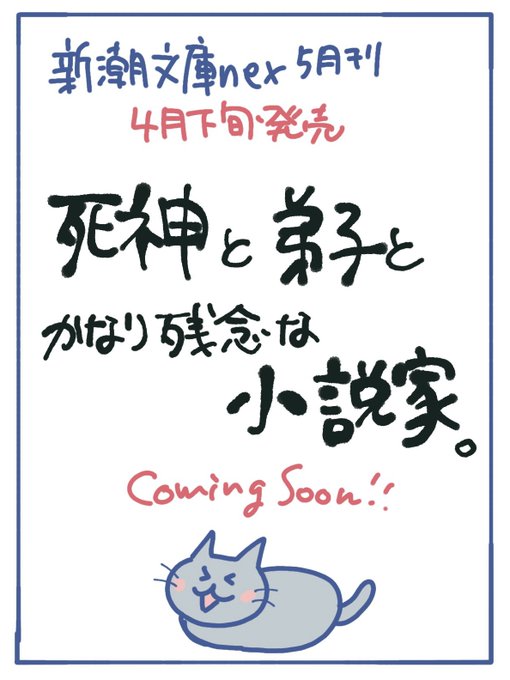 新潮文庫nex 5月刊
4月下旬発売
死神と弟子と
かなり残念な
小説家。
Coming Soon!!